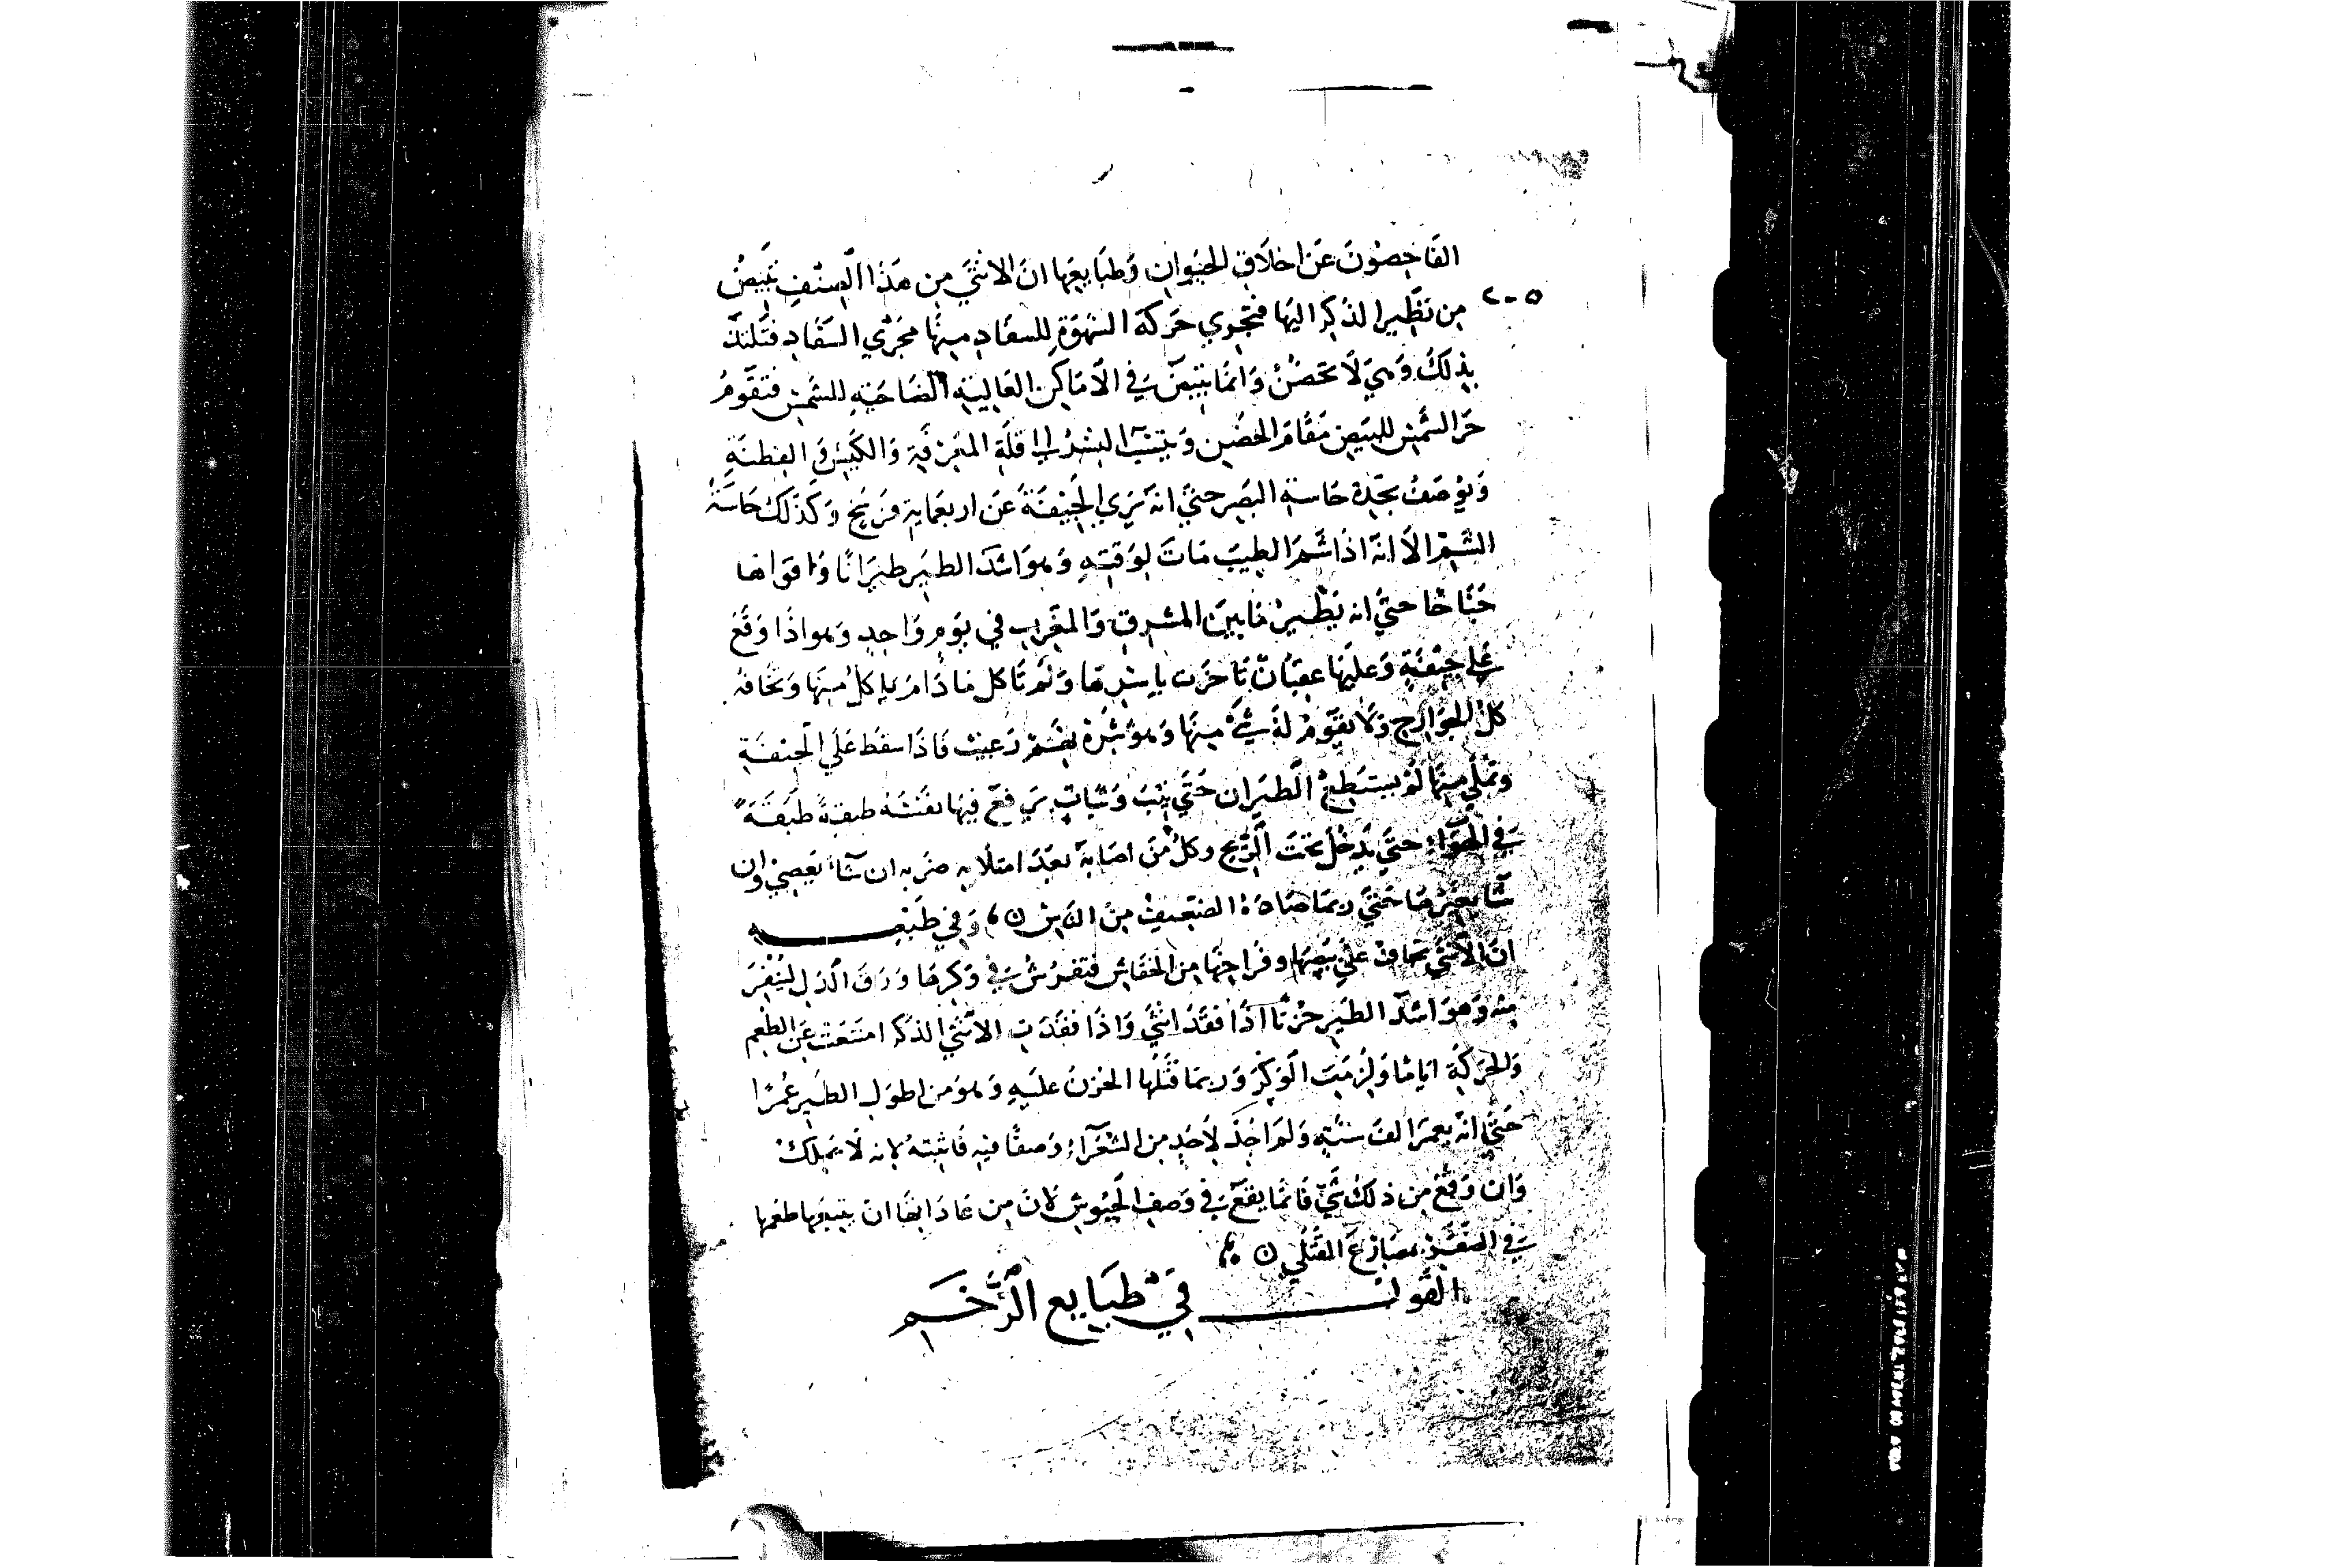 الفاحصون عن اخلاق الحيوان وطبايعها ان الانثي من هذا الصنف تبيض
من نظير الذكر اليها فتجري حركة الشهوة للسفاد منها مجري السفاد فتلتذ
بذلك وهي لا تحضن وانما تبيض في الاماكن العالية الضاحية للشمس فتقوم
حر الشمس للبيض مقام الحضن وينسب النسر الي قلة المعرفة والكيس والفطنة
ويوصف بحدة حاسة البصر حتي انه يري الجيفة عن اربعماية فرسخ وكذلك حاسة
الشم الا انه اذا شم الطيب مات لوقته وهو اشد الطير طيرانا واقواها
جناحا حتي انه يطير ما بين المشرق والمغرب في يوم واحد وهو اذا وقع
علي جيفة وعليها عقبان تاخرت باسرها ولم تاكل ما دام ياكل منها وتخافه
كل الجوارح ولا يقوم له شي منها وهو شره نهم رغيب فاذا سقط علي الجيفة
وتملي منها لم يستطع الطيران حتي يثب وثبات يرفع فيها نفسه طبقة طبقة
في الهواء حتي يدخل تحت الريح وكل من اصابه بعد امتلايه ضربه ان شاء بعصي وان
شا بغيرها حتي ربما صاده الضعيف من الناس ن وفي طبعه
ان الانثي تخاف علي بيضها وفراخها من الخفاش فتفرش في وكرها ورق الدلب لينفر
منه وهو اشد الطير حزنا اذا فقد انثي واذا فقدت الانثي الذكر امتنعت عن الطعم
والحركة اياما ولزمت الوكر وربما قتلها الحزن عليه وهو من اطول الطير عمرا
حتي انه يعمر الف سنة ولم اجد لاحد من الشعراء وصفا فيه فاثبته لانه لا يملك
وان وقع من ذلك شي فانما يقع في وصف الجيوش لان من عاداتها ان يتبعها طمعها
في مصارع القتلي ن
القول في طبايع الرخم
٢٠٥